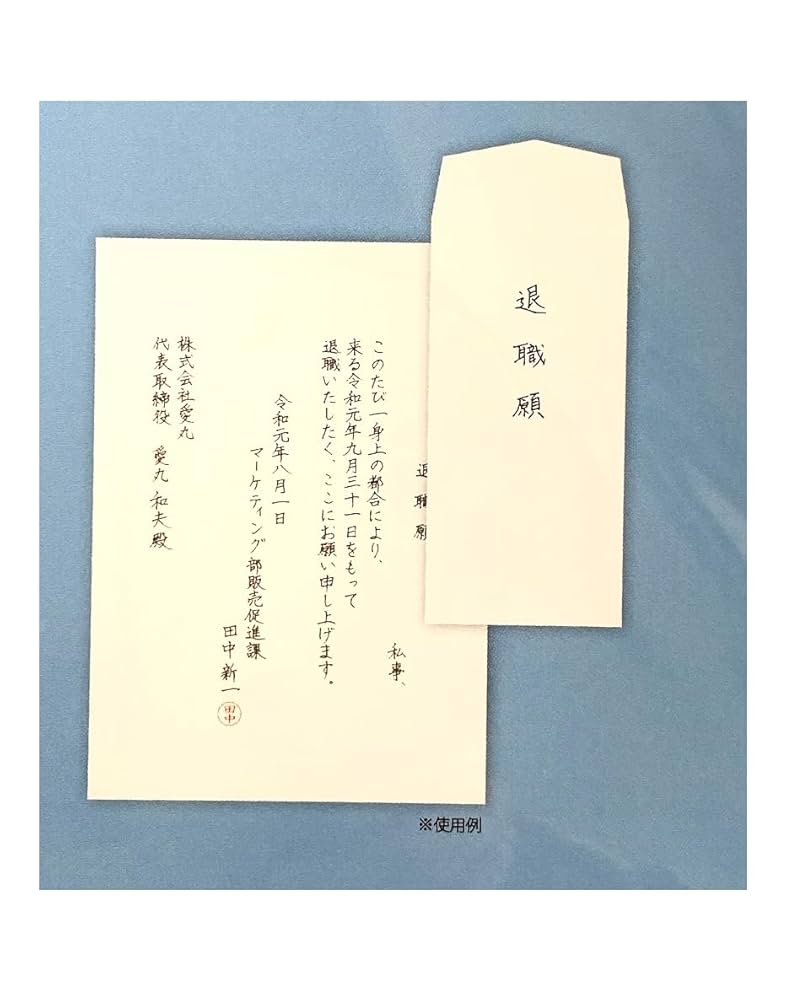 退職願
退職願
私事、
このたび一身上の都合により、
来る令和元年九月三十一日をもって
退職いたしたく、ここにお願い申し上げます。
令和元年八月一日
マーケティング部販売促進課
田中新一
田中
株式会社愛丸
代表取締役 愛丸和夫殿
※使用例